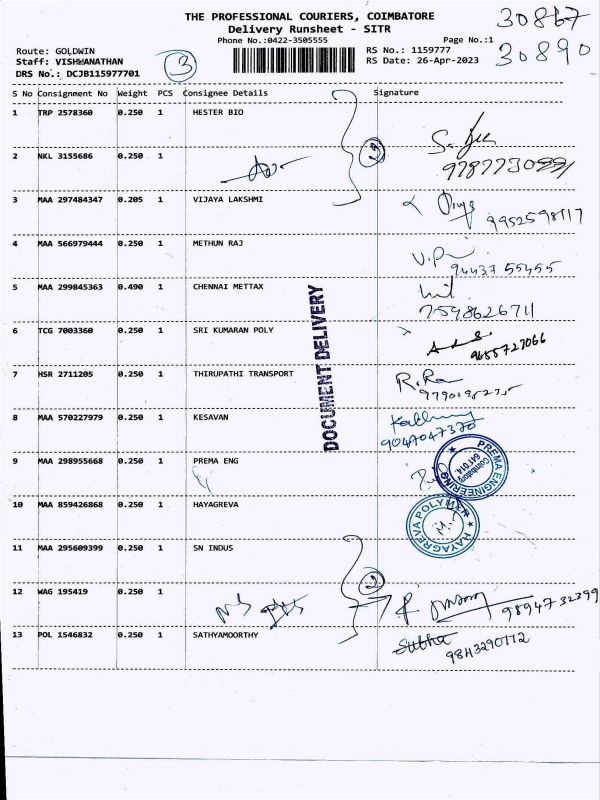 THE PROFESSIONAL COURIERS, COIMBATORE
30867
Delivery Runsheet - SITR
30890
Phone No.:0422-3505555
Page No.:1
Route: GOLDWIN
RS No.: 1159777
Staff: VISHWANATHAN
3
RS Date: 26-Apr-2023
DRS No.: DCJB115977701
S No Consignment No Weight PCS Consignee Details Signature
1 TRP 2578360 0.250 1 HESTER BIO
2 NKL 3155686 0.250 1
3 MAA 297484347 0.205 1 VIJAYA LAKSHMI
4 MAA 566979444 0.250 1 METHUN RAJ
94437 55455
5 MAA 299845363 0.490 1 CHENNAI METTAX
7598626711
6 TCG 7003360 0.250 1 SRI KUMARAN POLY
9655727066
7 HSR 2711205 0.250 1 THIRUPATHI TRANSPORT
DOCUMENT DELIVERY
8 MAA 570227979 0.250 1 KESAVAN
9047047370
9 MAA 298955668 0.250 1 PREMA ENG
PREMA ENGINEERING
Coimbatore
641 014
10 MAA 859426868 0.250 1 HAYAGREVA
HAYAGREVA POLYMER
11 MAA 295609399 0.250 1 SN INDUS
2
12 WAG 195419 0.250 1
98947 32399
13 POL 1546832 0.250 1 SATHYAMOORTHY
Subha
9843290172